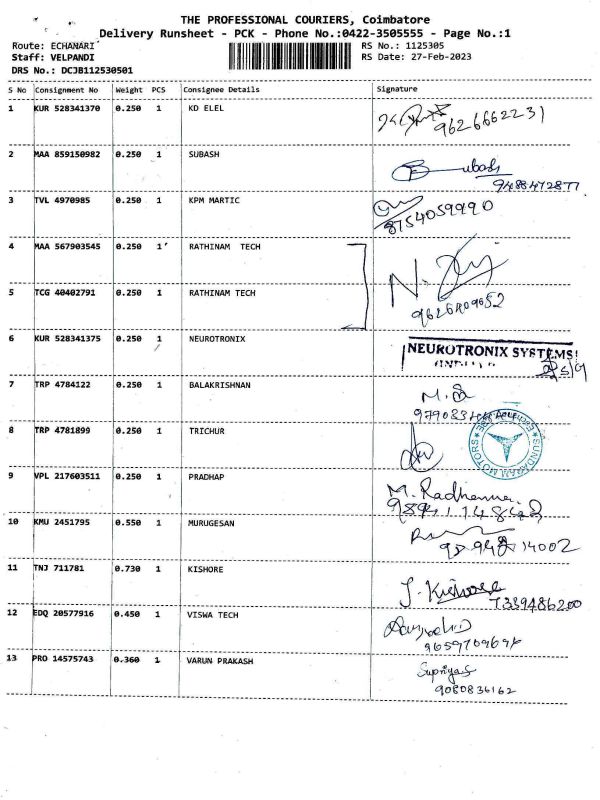 THE PROFESSIONAL COURIERS, Coimbatore
Delivery Runsheet - PCK - Phone No.:0422-3505555 - Page No.:1
Route: ECHANARI RS No.: 1125305
Staff: VELPANDI RS Date: 27-Feb-2023
DRS No.: DCJB112530501
S No Consignment No Weight PCS Consignee Details Signature
1 KUR 528341370 0.250 1 KD ELEL
9626662231
2 MAA 859150982 0.250 1 SUBASH
Subash
9488472877
3 TVL 4970985 0.250 1 KPM MARTIC
8754059990
4 MAA 567903545 0.250 1 RATHINAM TECH
5 TCG 40402791 0.250 1 RATHINAM TECH
6 KUR 528341375 0.250 1 NEUROTRONIX
NEUROTRONIX SYSTEMS
7 TRP 4784122 0.250 1 BALAKRISHNAN
8 TRP 4781899 0.250 1 TRICHUR
SUNDARAM MOTORS
9 VPL 217603511 0.250 1 PRADHAP
10 KMU 2451795 0.550 1 MURUGESAN
11 TNJ 711781 0.730 1 KISHORE
J. Kishore
7339486200
12 EDQ 20577916 0.450 1 VISWA TECH
13 PRO 14575743 0.360 1 VARUN PRAKASH
Supriya S
9080836162